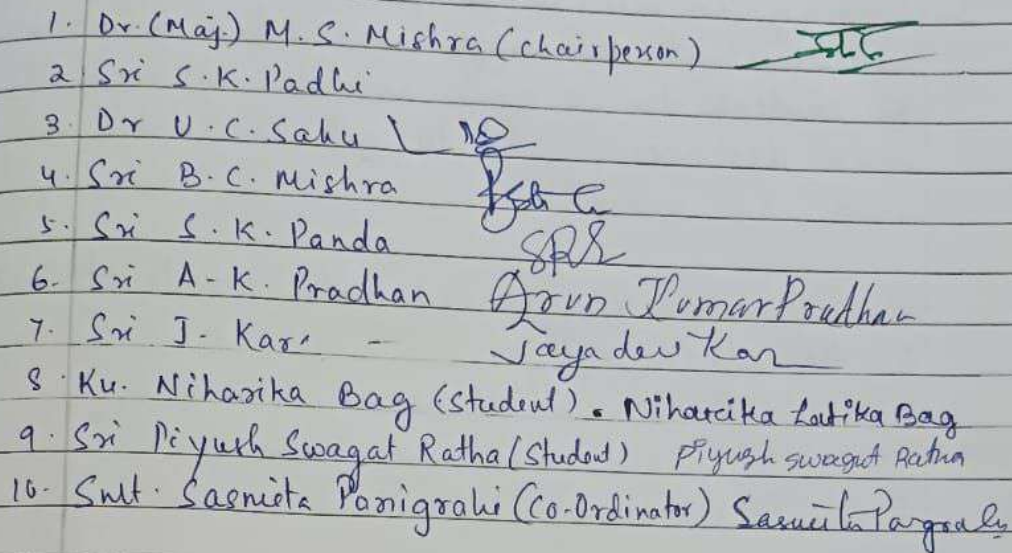 1. Dr. (Maj.) M. S. Mishra (Chairperson)
2 Sri S. K. Padhi
3. Dr U. C. Sahu
4. Sri B. C. Mishra
5. Sri S. K. Panda
6. Sri A-K. Pradhan Arun Kumar Pradhan
7. Sri J. Kar - Jayadev Kar
8. Ku. Niharika Bag (Student). Niharcika Latika Bag
9. Sri Piyush Swagat Ratha (Student) Piyush swagat Ratha
10- Smt. Sasmita Panigrahi (Co-Ordinator) Sasmita